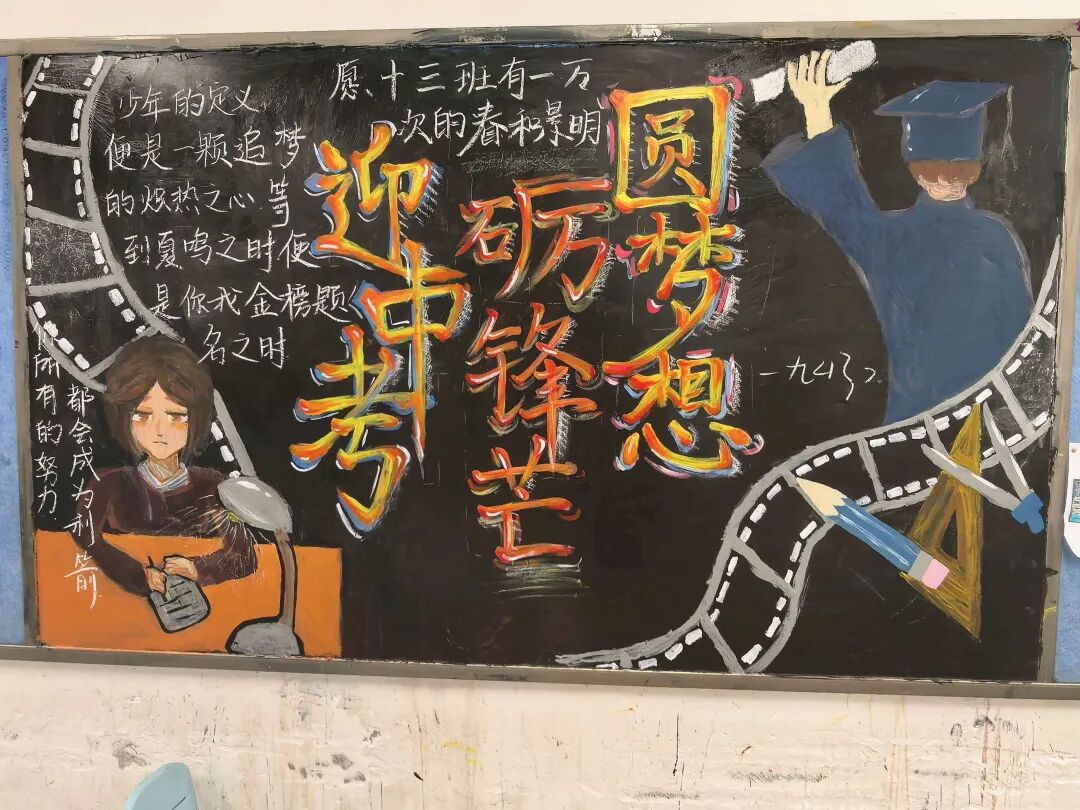 少年的定义
便是一颗追梦
的炽热之心 等
到夏鸣之时便
是你我金榜题
名之时
愿、十三班有一万
次的春和景明
迎中考
砺锋芒
圆梦想
所有的努力
都会成为利箭